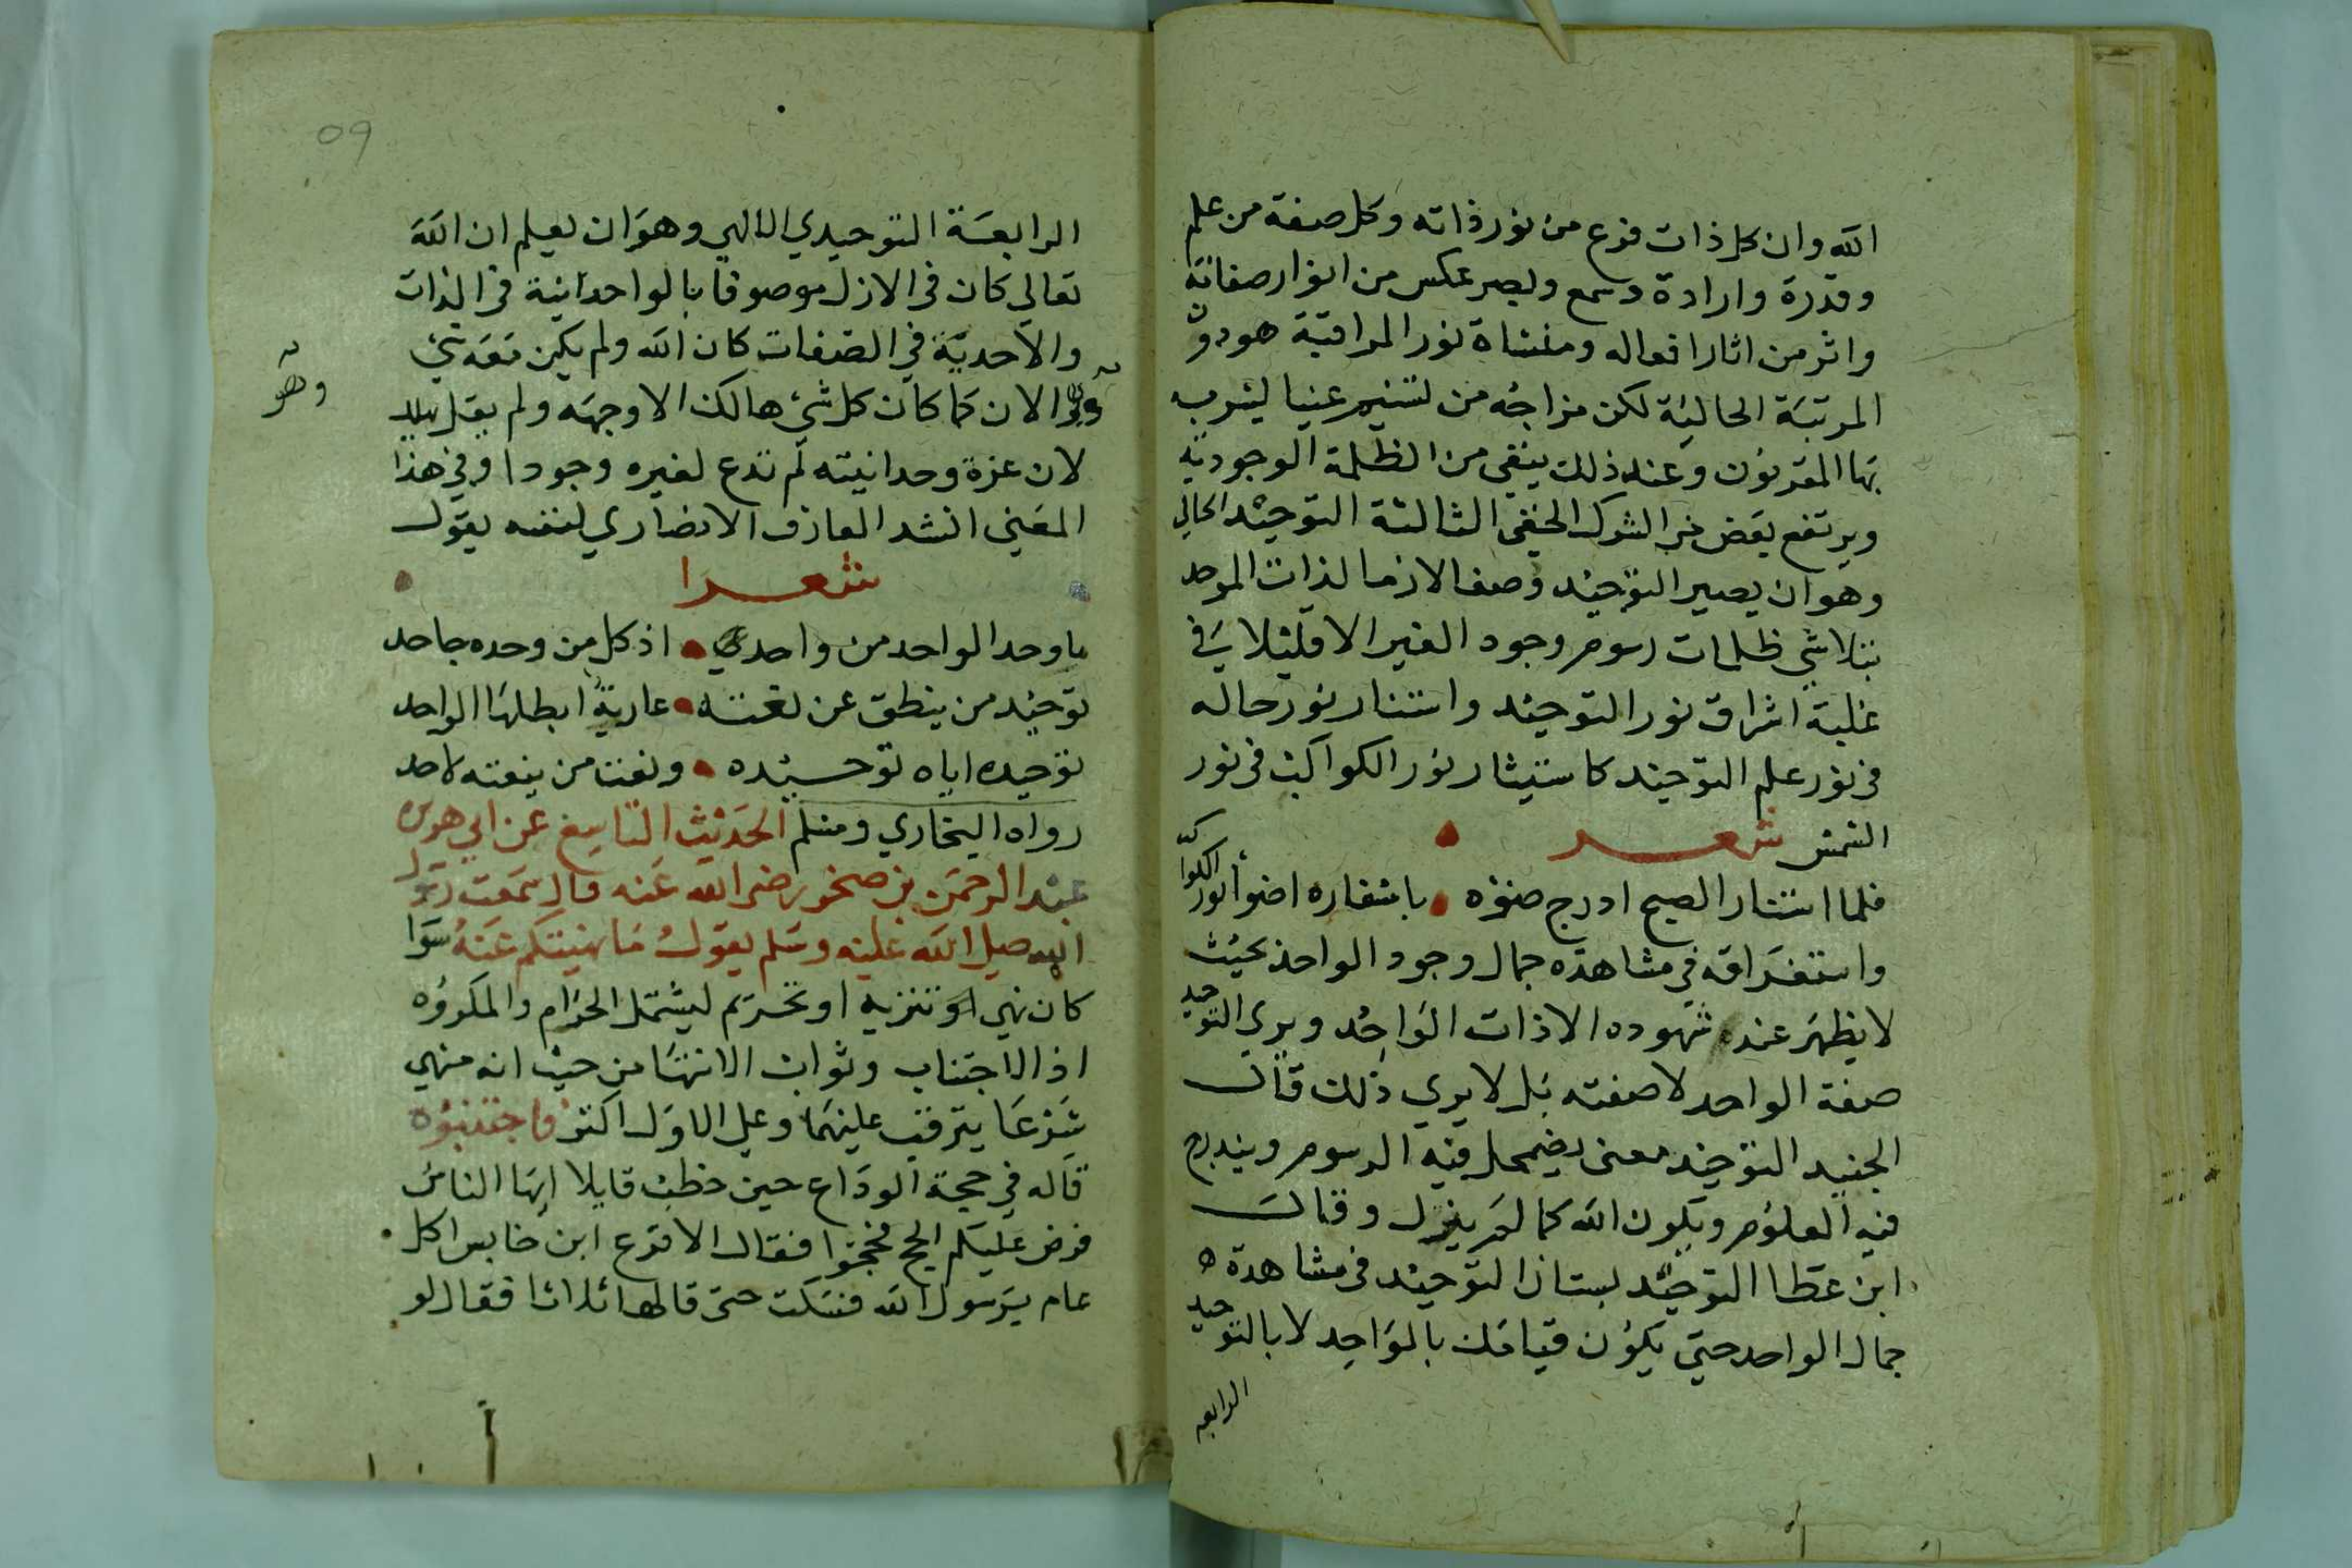 الله وان كل ذات فرع من نور ذاته وكل صفة من علم
وقدرة وارادة وسمع وبصر عكس من انوار صفاته
واثر من اثار افعاله ومنشاة نور المراقبة هو دون
المرتبة الحالية لكن مزاجه من تسنيم عينا يشرب
بها المقربون وعند ذلك ينقى من الظلمة الوجودية
ويرتفع بعض من الشرك الخفى الثالثة التوحيد الحالي
وهو ان يصير التوحيد وصفا لازما لذات الموحد
يتلاشي ظلمات رسوم وجود الغير الا قليلا في
غلبة اشراق نور التوحيد واستنار نور حاله
فى نور علم التوحيد كاستيثار نور الكواكب فى نور
الشمس شعر
فلما استنار الصبح ادرج ضوءه باشفاره اضوأ نور الكواكب
واستغراقه في مشاهدة جمال وجود الواحد بحيث
لا يظهر عند شهوده الا ذات الواحد ويرى التوحيد
صفة الواحد لا صفته بل لا يري ذلك قال
الجنيد التوحيد معنى يضمحل فيه الرسوم ويندرج
فيه العلوم ويكون الله كما لم يزل وقال
ابن عطا التوحيد نسيان التوحيد فى مشاهدة
جمال الواحد حتي يكون قيامك بالواحد لا بالتوحيد
الرابعه
09
الرابعة التوحيدي الالهي وهو ان يعلم ان الله
تعالي كان فى الازل موصوفا بالواحدانية فى الذات
والاحدية في الصفات كان الله ولم يكن معه شئ
وهو
الان كما كان كل شئ هالك الا وجهه ولم يقل يهلك
لان عزة وحدانيته لم تدع لغيره وجودا وفي هذا
المعني انشد العارف الانصاري لنفسه يقول
شعرا
ما وحد الواحد من واحدي اذ كل من وحده جاحد
توحيد من ينطق عن نعته عارية ابطلها الواحد
توحيده اياه توحيده ونعت من ينعته لاحد
رواه البخاري ومسلم الحديث التاسع عن ابي هريره
عبد الرحمن بن صخر رضى الله عنه قال سمعت رسول
الله صلى الله عليه وسلم يقول ما نهيتكم عنه سوا
كان نهي او تنزيه او تحريم ليشتمل الحرام والمكروه
اذ الاجتناب وثواب الانتها من حيث انه منهي
شرعا يترقب عليهما وعلي الاول اكثر فاجتنبوه
قاله في حجة الوداع حين خطب قايلا ايها الناس
فرض عليكم الحج فحجوا فقال الاقرع ابن حابس اكل
عام يرسول الله فسكت حتى قالها ثلاثا فقال لو